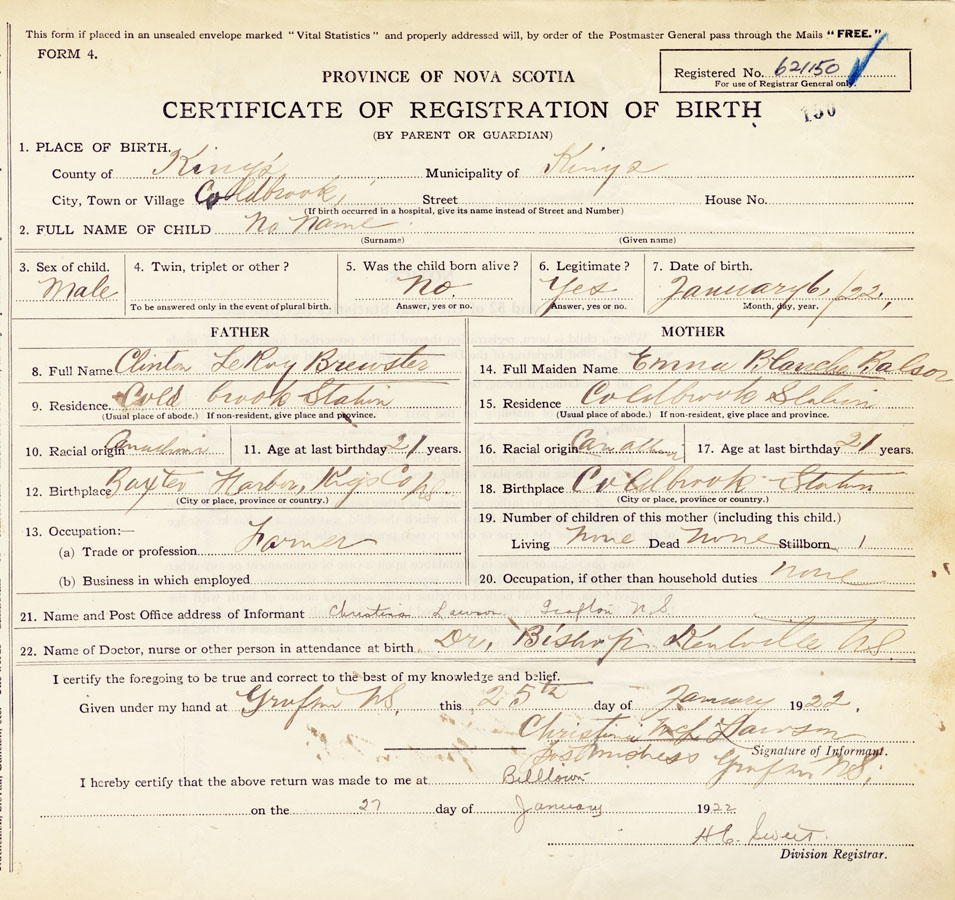 This form if placed in an unsealed envelope marked "Vital Statistics" and properly addressed will, by order of the Postmaster General pass through the Mails "FREE."
FORM 4.
Registered No. 621150
For use of Registrar General only.
PROVINCE OF NOVA SCOTIA
CERTIFICATE OF REGISTRATION OF BIRTH
150
(BY PARENT OR GUARDIAN)
1. PLACE OF BIRTH.
County of King's Municipality of Kings
City, Town or Village Coldbrook, Street House No.
(If birth occurred in a hospital, give its name instead of Street and Number)
2. FULL NAME OF CHILD No Name
(Surname) (Given name)
3. Sex of child. 4. Twin, triplet or other? 5. Was the child born alive? 6. Legitimate? 7. Date of birth.
Male No. Yes January 6, /22,
To be answered only in the event of plural birth. Answer, yes or no. Answer, yes or no. Month, day, year.
FATHER
8. Full Name Clinton LeRoy Brewster
9. Residence Cold brook Station
(Usual place of abode.) If non-resident, give place and province.
10. Racial origin 11. Age at last birthday 21 years.
12. Birthplace Baxter Harbor, Kings Co NS.
(City or place, province or country.)
13. Occupation:—
(a) Trade or profession Farmer
(b) Business in which employed
MOTHER
14. Full Maiden Name Emma Blanche Balsor
15. Residence Coldbrook Station
(Usual place of abode.) If non-resident, give place and province.
16. Racial origin 17. Age at last birthday 21 years.
18. Birthplace Coldbrook Station
(City or place, province or country.)
19. Number of children of this mother (including this child.)
Living None Dead None Stillborn 1
20. Occupation, if other than household duties none
21. Name and Post Office address of Informant Christina Lawson Grafton N S
22. Name of Doctor, nurse or other person in attendance at birth Dr. Bishop Kentville N.S.
I certify the foregoing to be true and correct to the best of my knowledge and belief.
Given under my hand at Grafton NS, this 25th day of January 1922.
Christina Lawson
Signature of Informant.
Postmistress Grafton NS,
I hereby certify that the above return was made to me at Billtown
on the 27 day of January 1922
H C. Sweet.
Division Registrar.